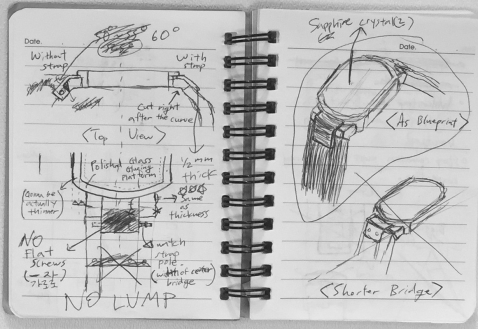 Date.
60°
Without
strap
With
strap
Cut right
after the curve
<Top View>
Polished Glass
Gluing
Platform
1/2 mm
thick
Gonna be
actually
thinner
Same
as
thickness
NO
Flat
Screws
match
strap
(width of center
bridge)
NO LUMP
Sapphire crystal(?)
Date.
<As Blueprint>
<Shorter Bridge>